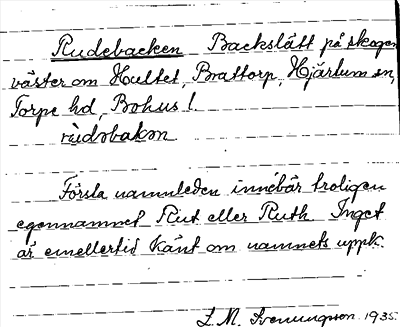 Rudebacken Backslätt på skogen
väster om Hultet, Brattorp, Hjärtum sn,
Torpe hd, Bohus l.
rùdəbakən
Första namnleden innebär troligen
egennamnet Rut eller Ruth. Inget
är emellertid känt om namnets uppk.
L. M. Svenungsson 1935.